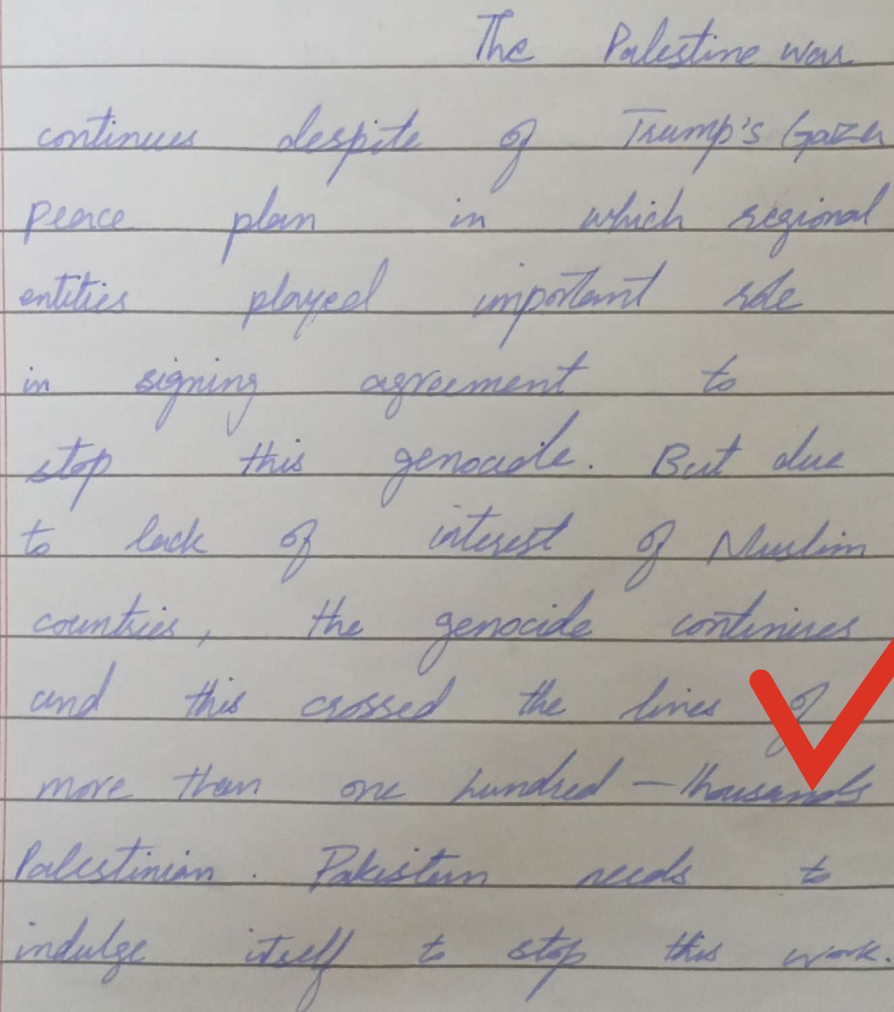 The Palestine war
continues despite of Trump's Gaza
Peace plan in which regional
entities played important role
in signing agreement to
stop this genocide. But due
to lack of interest of Muslim
countries, the genocide continues
and this crossed the lines of
more than one hundred - thousands
Palestinian. Pakistan needs to
indulge itself to stop this work.